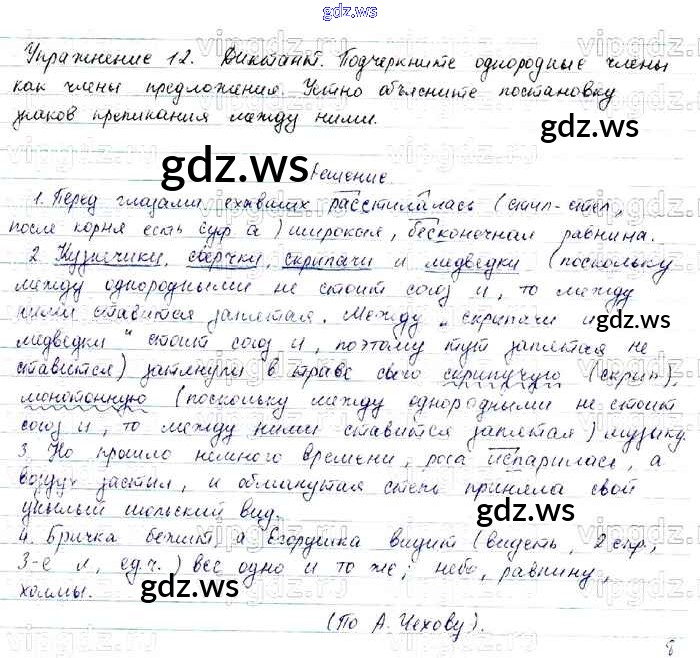 gdz.ws
Упражнение 12. Диктант. Подчеркните однородные члены
как члены предложения. Устно объясните постановку
знаков препинания между ними.
gdz.ws
gdz.ws
Решение.
1. Перед глазами ехавших расстилалась (стил-стел,
после корня есть суф а) широкая, бесконечная равнина.
2. Кузнечики, сверчки, скрипачи и медведки (поскольку
между однородными не стоит союз и, то между
ними ставится запятая. Между "скрипачи и
gdz.ws
медведки" стоит союз и, поэтому тут запятая не
ставится) затянули в траве свою скрипучую (скрип),
монотонную (поскольку между однородными не стоит
союз и, то между ними ставится запятая) музыку.
3. Но прошло немного времени, роса испарилась, а
воздух застыл, и обманутая степь приняла свой
унылый июльский вид.
gdz.ws
4. Бричка бежит, а Егорушка видит (видеть, 2 спр.,
3-е л, ед.ч.) все одно и то же; небо, равнину,
холмы.
gdz.ws
(По А. Чехову).
8